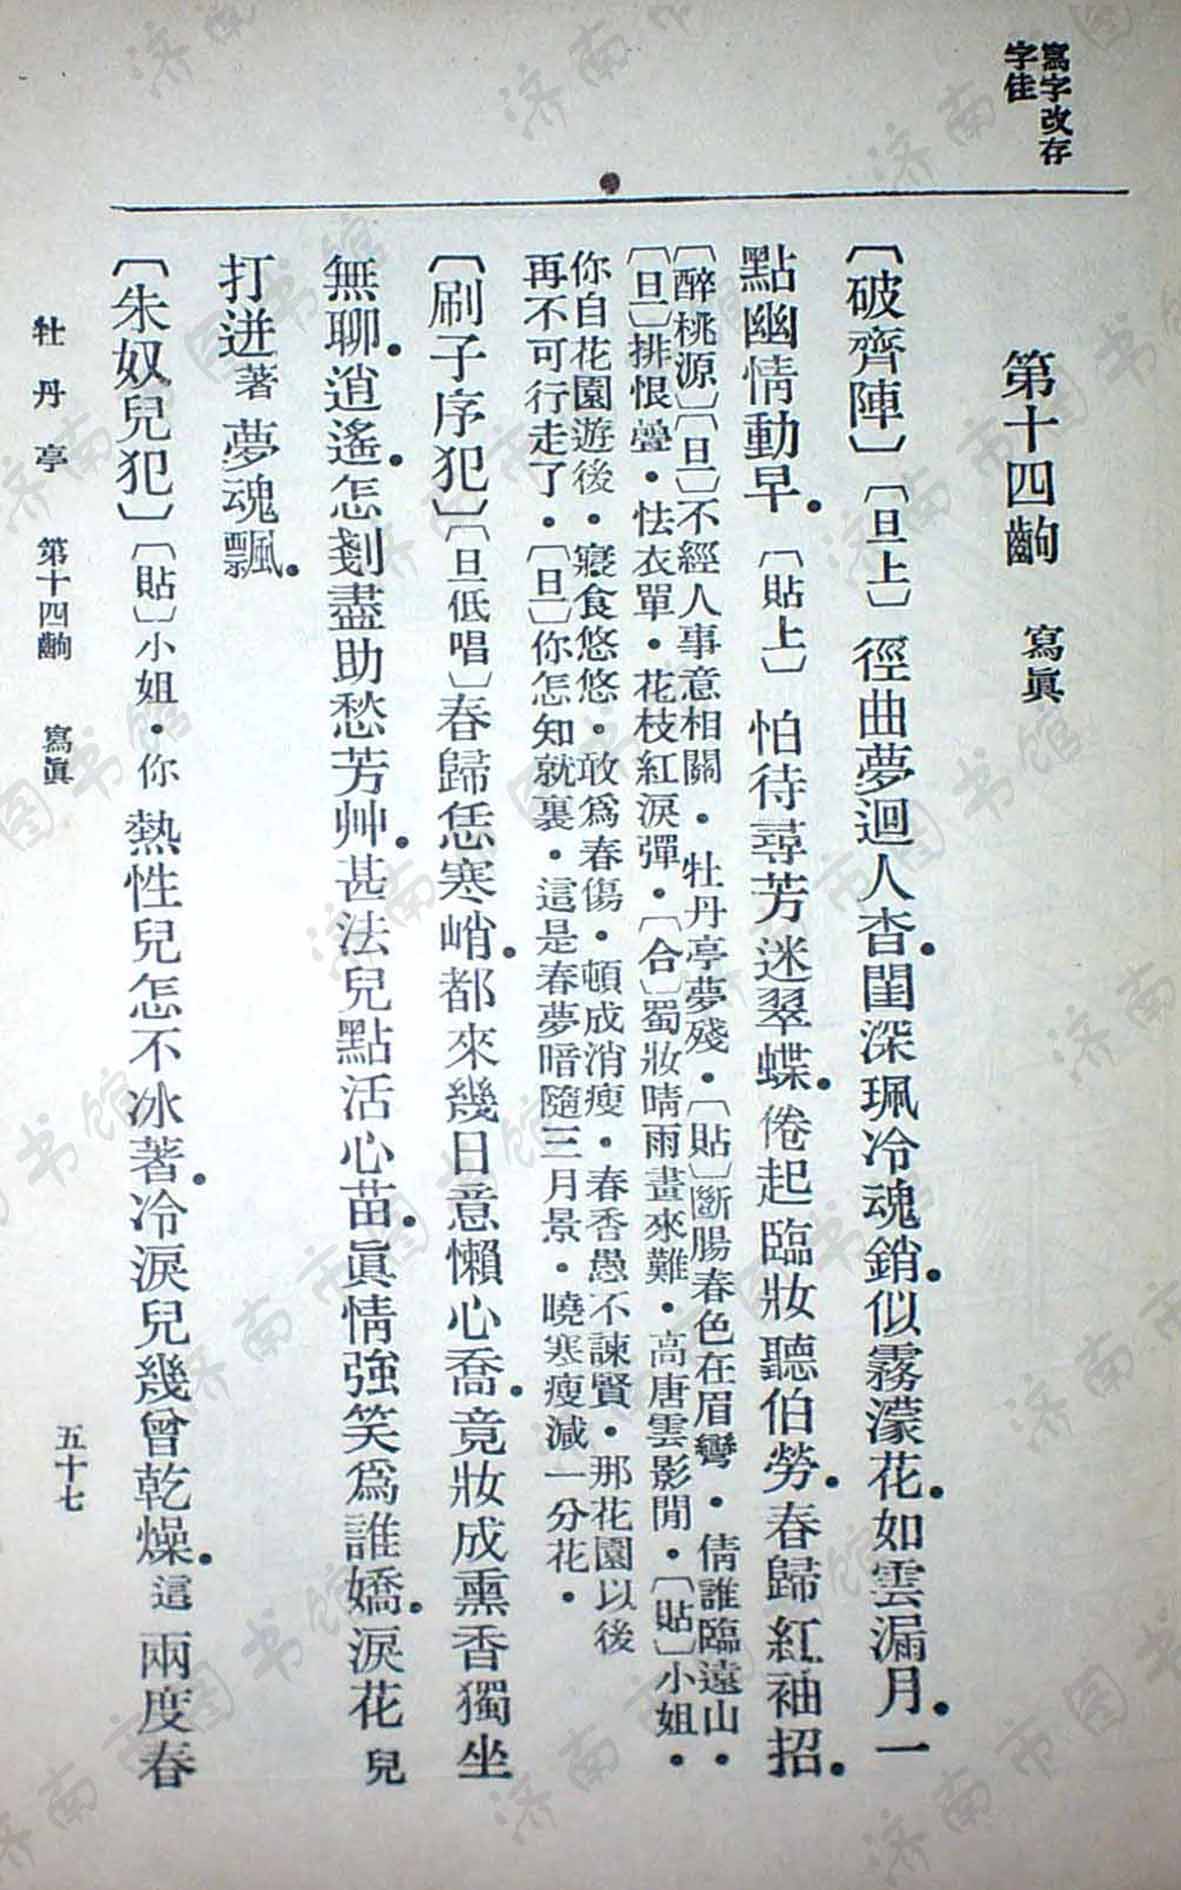 寫字改存
字佳
第十四齣　寫眞
〔破齊陣〕〔旦上〕徑曲夢迴人杳．閨深珮冷魂銷．似霧濛花．如雲漏月．一
點幽情動早．〔貼上〕怕待尋芳迷翠蝶．倦起臨妝聽伯勞．春歸紅袖招．
〔醉桃源〕〔旦〕不經人事意相關．牡丹亭夢殘．〔貼〕斷腸春色在眉彎．倩誰臨遠山．
〔旦〕排恨疊．怯衣單．花枝紅淚彈．〔合〕蜀妝晴雨畫來難．高唐雲影閒．〔貼〕小姐．
你自花園遊後．寢食悠悠．敢爲春傷．頓成消瘦．春香愚不諫賢．那花園以後
再不可行走了．〔旦〕你怎知就裏．這是春夢暗隨三月景．曉寒瘦減一分花．
〔刷子序犯〕〔旦低唱〕春歸恁寒峭．都來幾日意懶心喬．竟妝成熏香獨坐
無聊．逍遙．怎剗盡助愁芳艸．甚法兒點活心苗．眞情強笑爲誰嬌．淚花兒
打迸著夢魂飄．
〔朱奴兒犯〕〔貼〕小姐．你熱性兒怎不冰著．冷淚兒幾曾乾燥．這兩度春
牡丹亭　第十四齣　寫眞　五十七
济南市图书馆